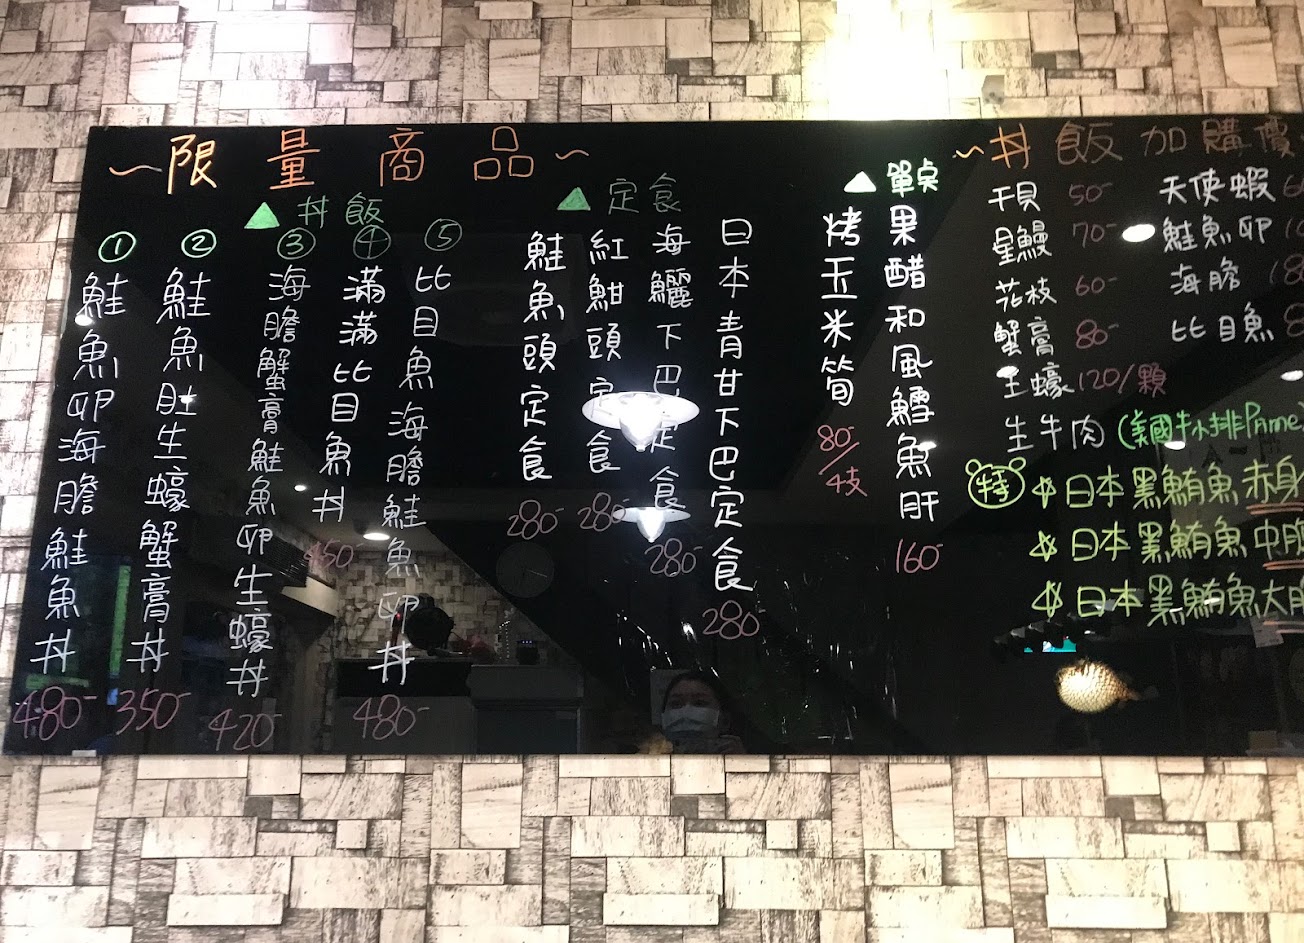 ~限量商品~
▲丼飯
① 鮭魚卵海膽鮭魚丼 480-
② 鮭魚肚生蠔蟹膏丼 350-
③ 海膽蟹膏鮭魚卵生蠔丼 420-
④ 滿滿比目魚丼 450-
⑤ 比目魚海膽鮭魚卵丼 480-
▲定食
鮭魚頭定食 280-
紅魽頭定食 280-
海鱺下巴定食 280-
日本青甘下巴定食 280-
▲單点
烤玉米筍 80-/4支
果醋和風鱈魚肝 160-
~丼飯加購價
干貝 50-
星鰻 70-
花枝 60-
蟹膏 80-
生蠔 120/顆
天使蝦
鮭魚卵
海膽
比目魚
生牛肉(美國牛小排Prime)
特 日本黑鮪魚赤身
日本黑鮪魚中腹
日本黑鮪魚大腹